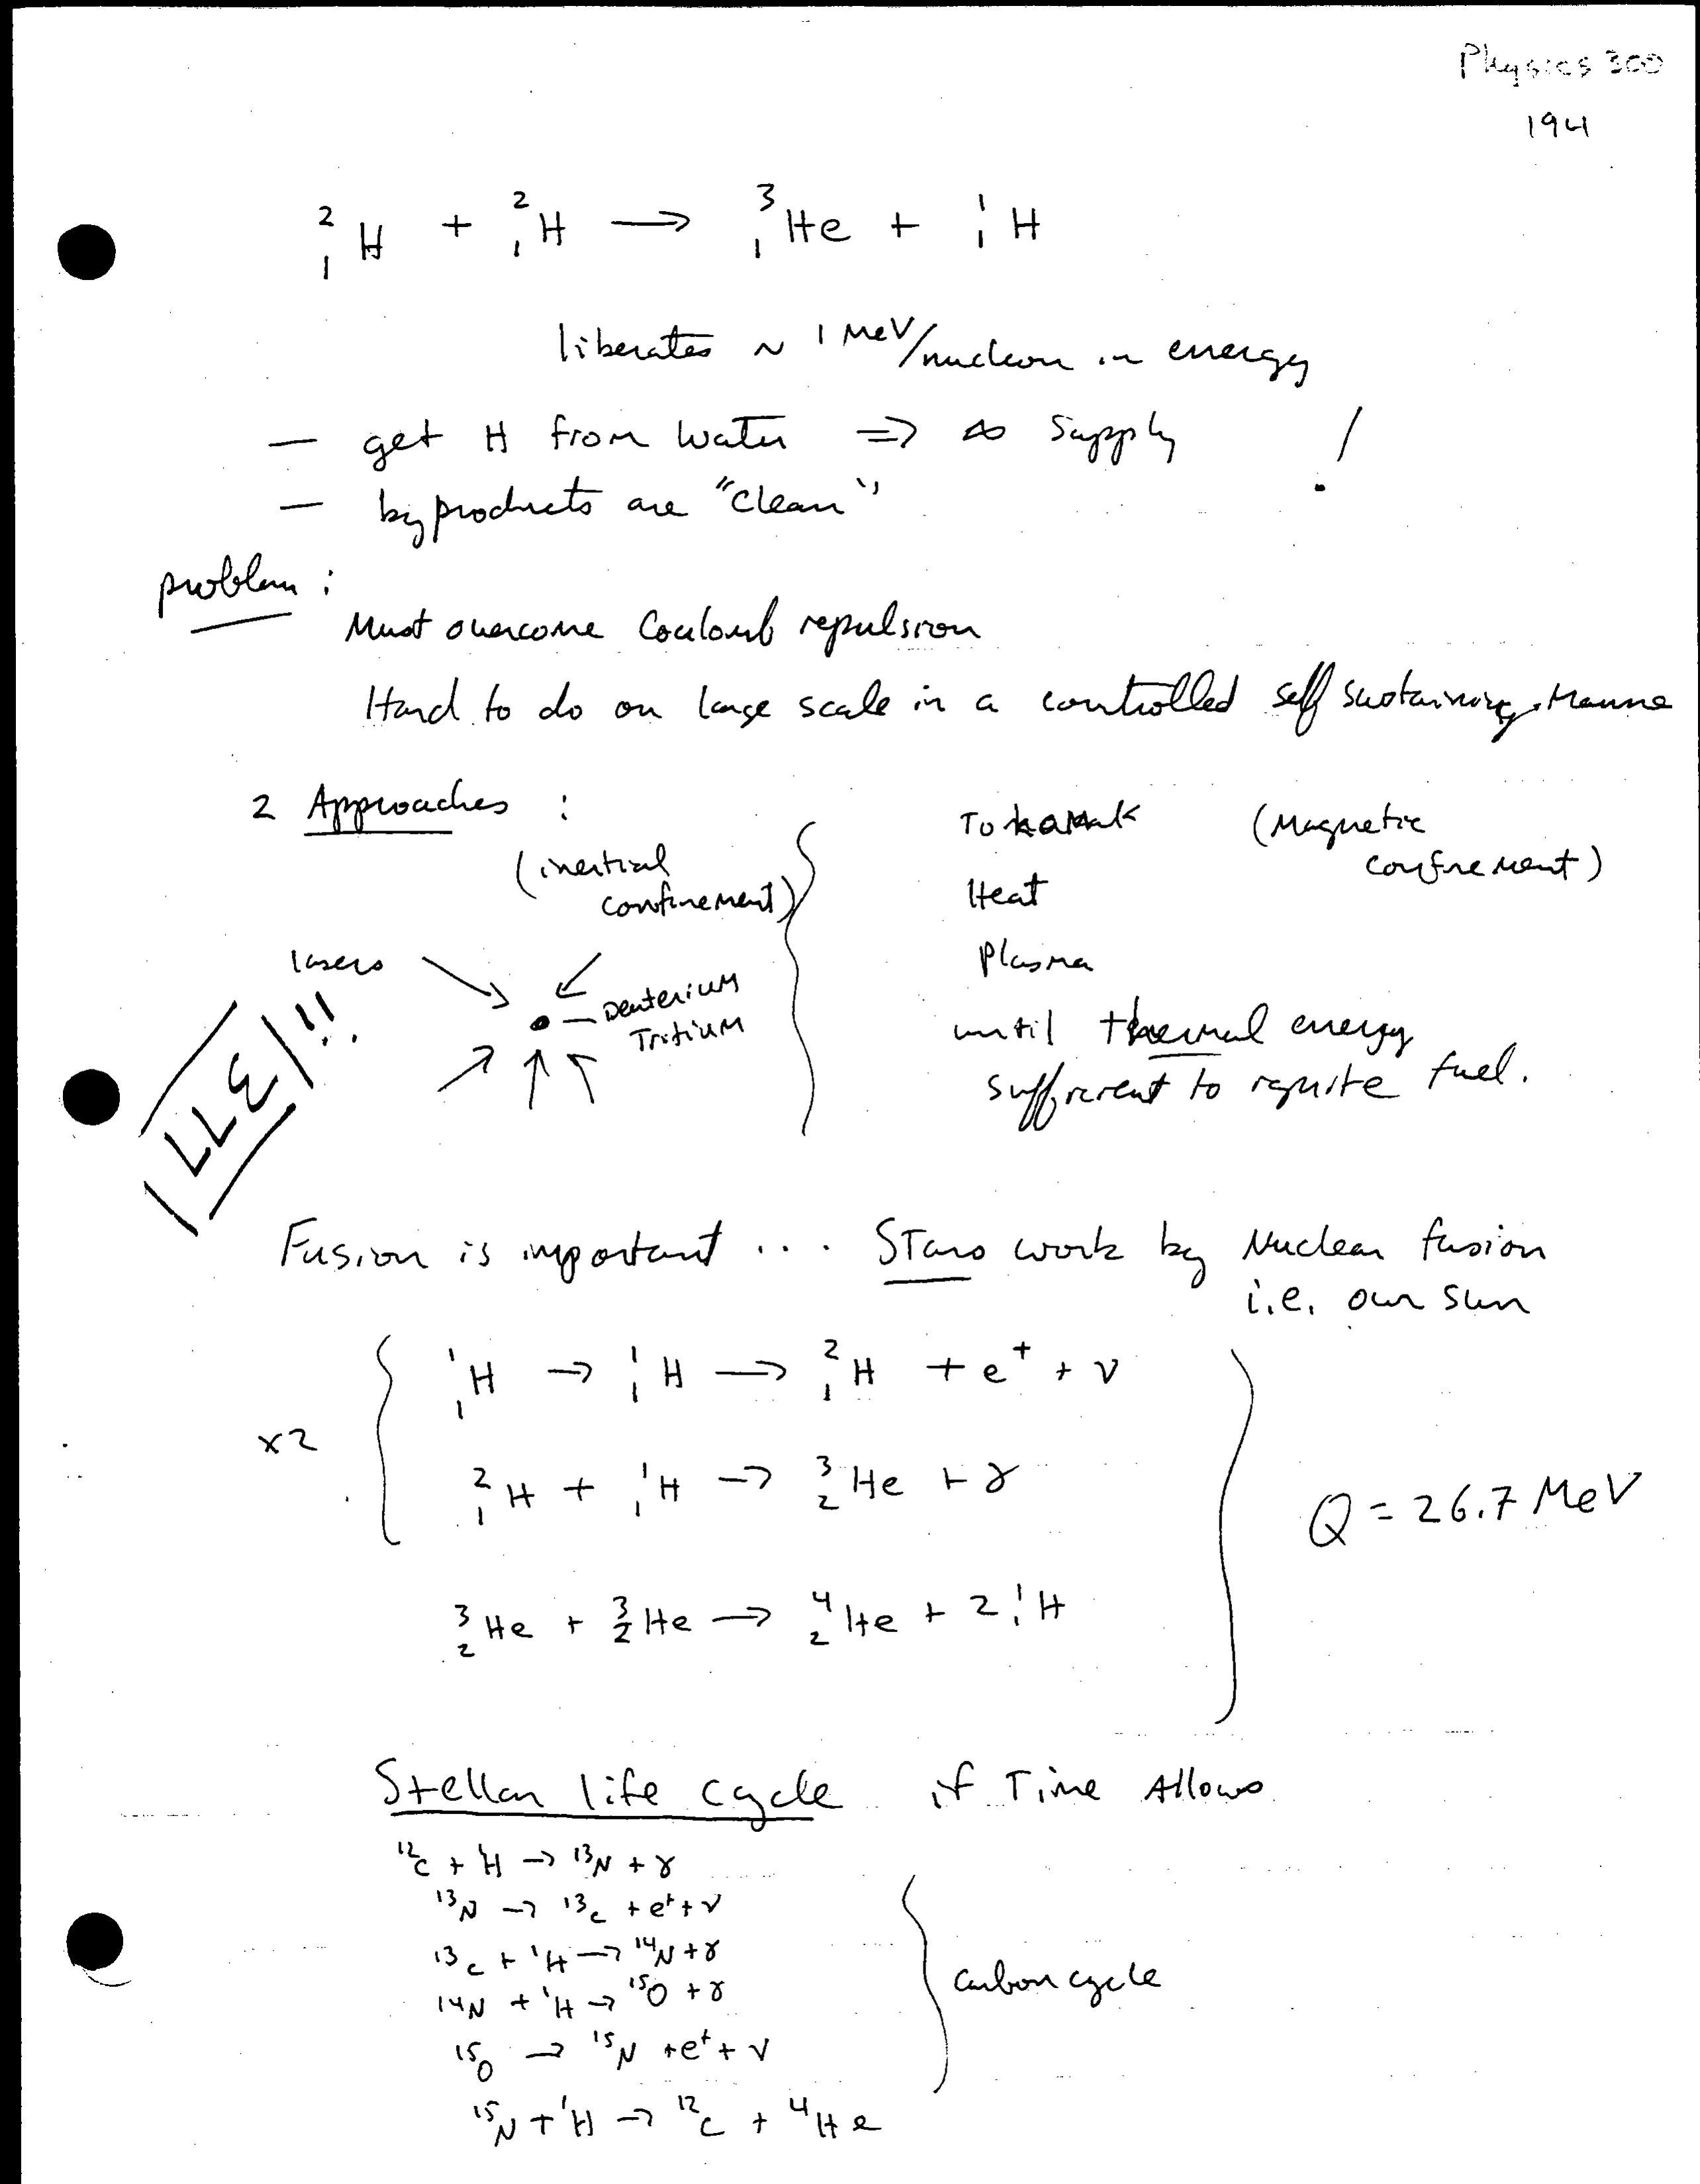 Physics 300
194
²₁H + ²₁H → ³₁He + ¹₁H
liberates ~ 1 MeV/nucleon in energy
— get H from water ⇒ ∞ supply !
— byproducts are "clean"
problem :
Must overcome Coulomb repulsion
Hard to do on large scale in a controlled self sustaining manne
2 Approaches :
(inertial
confinement)
lasers
Deuterium
Tritium
LLE !!
Tokamak (Magnetic
confinement)
Heat
Plasma
until thermal energy
sufficient to ignite fuel.
Fusion is important ... Stars work by Nuclear fusion
i.e. our sun
x2
¹₁H → ¹₁H → ²₁H + e⁺ + ν
²₁H + ¹₁H → ³₂He + γ
³₂He + ³₂He → ⁴₂He + 2 ¹₁H
Q = 26.7 MeV
Stellar life cycle if Time Allows
¹²C + ¹H → ¹³N + γ
¹³N → ¹³C + e⁺ + ν
¹³C + ¹H → ¹⁴N + γ
¹⁴N + ¹H → ¹⁵O + γ
¹⁵O → ¹⁵N + e⁺ + ν
¹⁵N + ¹H → ¹²C + ⁴He
carbon cycle